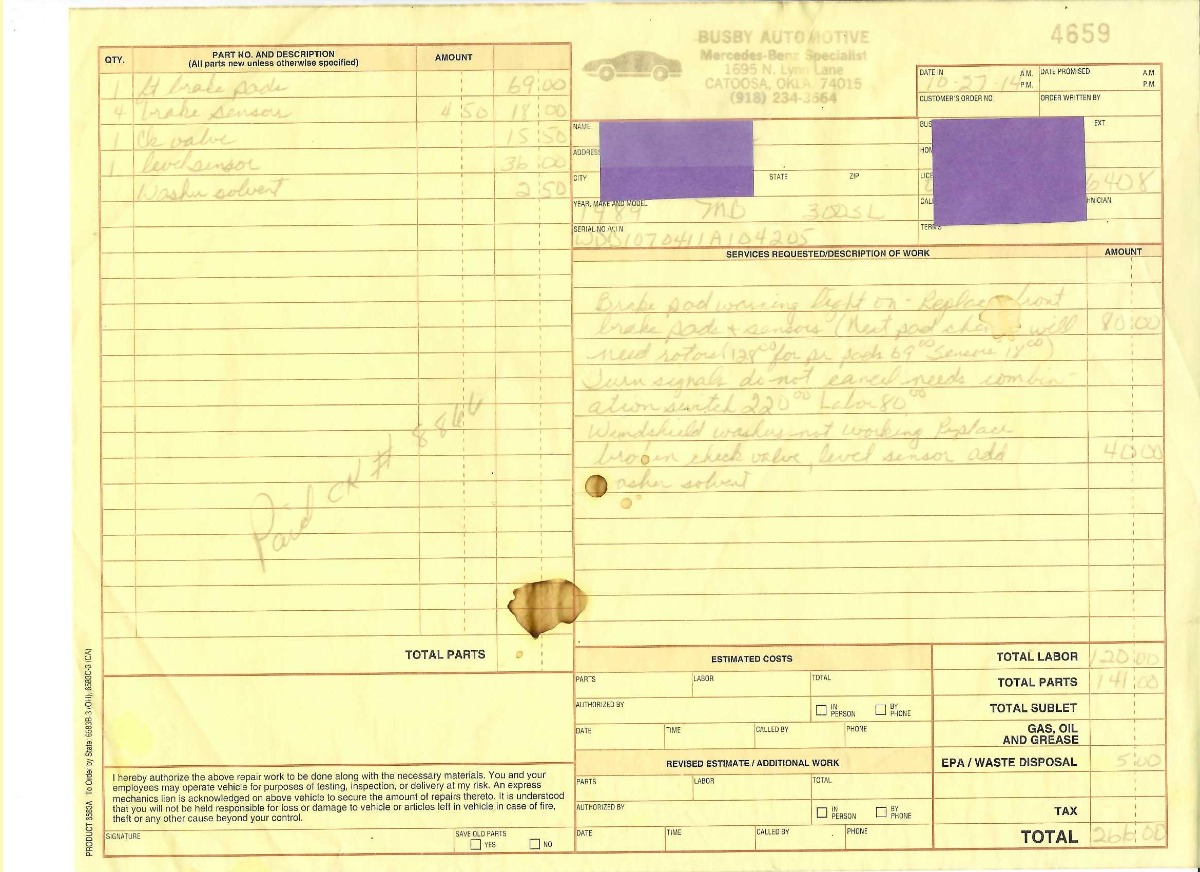 BUSBY AUTOMOTIVE
Mercedes-Benz Specialist
1695 N. Lynn Lane
CATOOSA, OKLA. 74015
(918) 234-3564
4659
DATE IN 10-27-14 A.M. P.M. DATE PROMISED A.M. P.M.
CUSTOMER'S ORDER NO. ORDER WRITTEN BY
NAME
ADDRESS
CITY STATE ZIP
EXT
6408
YEAR, MAKE AND MODEL
1989 MB 300SL
SERIAL NO./V.I.N.
TERMS
QTY. PART NO. AND DESCRIPTION (All parts new unless otherwise specified) AMOUNT
1 ft brake pads 69 00
4 brake sensors 4 50 18 00
1 Ck valve 15 50
1 level sensor 36 00
Washer solvent 2 50
Paid CK # 8866
TOTAL PARTS
SERVICES REQUESTED/DESCRIPTION OF WORK AMOUNT
Brake pad warning light on - Replace front
brake pads + sensors (Next pad will 80 00
need rotors (128 00 for pr pads 69 00 Sensors 18 00)
Turn signals do not cancel needs combin-
ation switch 220 00 Labor 80 00
Windshield washers not working Replace
broken check valve, level sensor add 40 00
asher solvent
ESTIMATED COSTS
PARTS LABOR TOTAL
AUTHORIZED BY IN PERSON BY PHONE
DATE TIME CALLED BY PHONE
REVISED ESTIMATE / ADDITIONAL WORK
PARTS LABOR TOTAL
AUTHORIZED BY IN PERSON BY PHONE
DATE TIME CALLED BY PHONE
TOTAL LABOR 120 00
TOTAL PARTS 141 00
TOTAL SUBLET
GAS, OIL AND GREASE
EPA / WASTE DISPOSAL 5 00
TAX
TOTAL 266 00
I hereby authorize the above repair work to be done along with the necessary materials. You and your
employees may operate vehicle for purposes of testing, inspection, or delivery at my risk. An express
mechanics lien is acknowledged on above vehicle to secure the amount of repairs thereto. It is understood
that you will not be held responsible for loss or damage to vehicle or articles left in vehicle in case of fire,
theft or any other cause beyond your control.
SIGNATURE SAVE OLD PARTS YES NO
PRODUCT 6583A To Order by State: 6583B-3 (OH), 6583C-3 (CA)